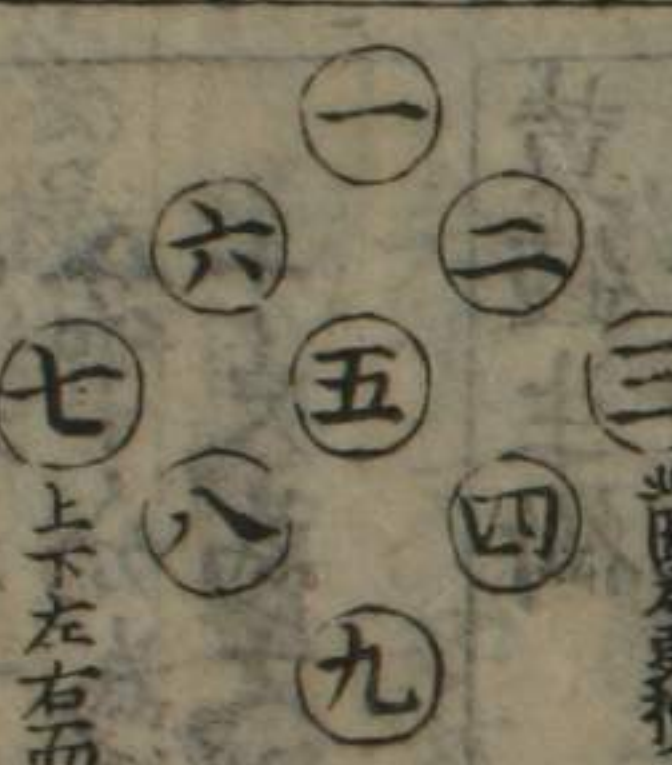 一
六 二
七 五 三
八 四
九
上下左右而